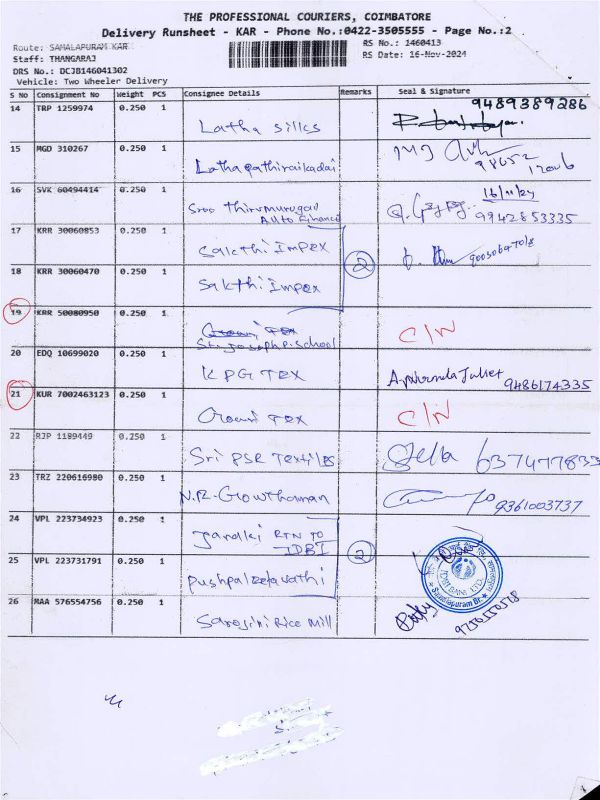 THE PROFESSIONAL COURIERS, COIMBATORE
Delivery Runsheet - KAR - Phone No.:0422-3505555 - Page No.:2
Route: SAMALAPURAM KAR
RS No.: 1460413
Staff: THANGARAJ
RS Date: 16-Nov-2024
DRS No.: DCJB146041302
Vehicle: Two Wheeler Delivery
S No Consignment No Weight PCS Consignee Details Remarks Seal & Signature
14 TRP 1259974 0.250 1 Latha silks 9489389286
15 MGD 310267 0.250 1 Lathapathiraikadai
16 SVK 60494414 0.250 1 Sree Thirumurugan 16/11/24
Auto Finance 9942853335
17 KRR 30060853 0.250 1 Sakthi Impex
18 KRR 30060470 0.250 1 Sakthi Impex 2
19 KRR 50080950 0.250 1 Gowri Tex C/N
St. Joseph P. School
20 EDQ 10699020 0.250 1 KPG TEX 9486174335
21 KUR 7002463123 0.250 1 Gowri Tex C/N
22 RJP 1189449 0.250 1 Sri PSR Textiles Stella 6374777833
23 TRZ 220616980 0.250 1 N.R. Gowthaman 9361003737
24 VPL 223734923 0.250 1 Janaki RTN TO
IDBI
25 VPL 223731791 0.250 1 2
IDBI BANK LTD.
Samalapuram Br.
26 MAA 576554756 0.250 1 Sarojini Rice Mill